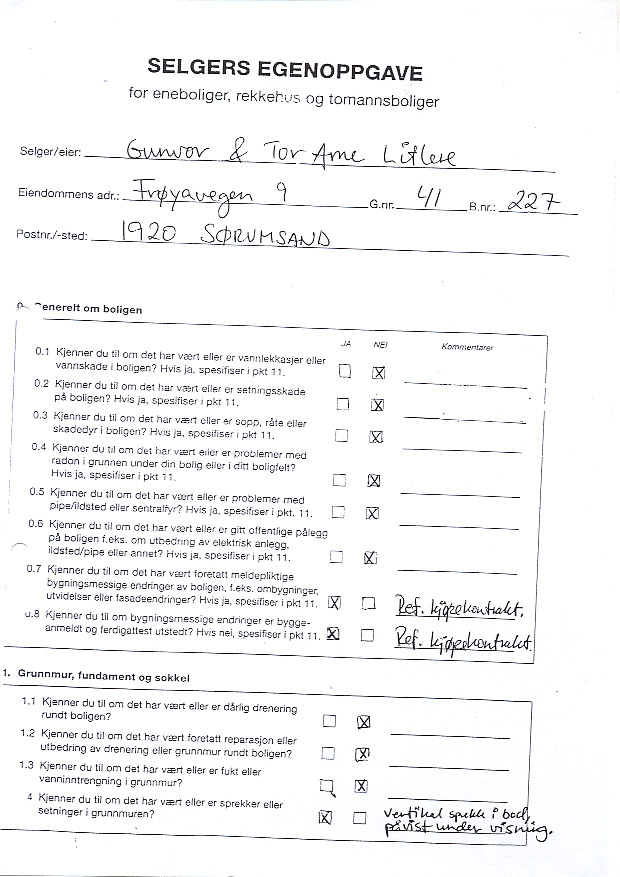 SELGERS EGENOPPGAVE
for eneboliger, rekkehus og tomannsboliger
Selger/eier: Gunvor & Tor Arne
Eiendommens adr.: Frøyavegen 9 G.nr. 41 B.nr.: 227
Postnr./-sted: 1920 SØRUMSAND
Generelt om boligen
JA NEI Kommentarer
0.1 Kjenner du til om det har vært eller er vannlekkasjer eller
vannskade i boligen? Hvis ja, spesifiser i pkt 11.
0.2 Kjenner du til om det har vært eller er setningsskade
på boligen? Hvis ja, spesifiser i pkt 11.
0.3 Kjenner du til om det har vært eller er sopp, råte eller
skadedyr i boligen? Hvis ja, spesifiser i pkt 11.
0.4 Kjenner du til om det har vært eller er problemer med
radon i grunnen under din bolig eller i ditt boligfelt?
Hvis ja, spesifiser i pkt 11.
0.5 Kjenner du til om det har vært eller er problemer med
pipe/ildsted eller sentralfyr? Hvis ja, spesifiser i pkt. 11.
0.6 Kjenner du til om det har vært eller er gitt offentlige pålegg
på boligen f.eks. om utbedring av elektrisk anlegg,
ildsted/pipe eller annet? Hvis ja, spesifiser i pkt 11.
0.7 Kjenner du til om det har vært foretatt meldepliktige
bygningsmessige endringer av boligen, f.eks. ombygninger,
utvidelser eller fasadeendringer? Hvis ja, spesifiser i pkt 11. Ref. kjøpekontrakt.
0.8 Kjenner du til om bygningsmessige endringer er bygge-
anmeldt og ferdigattest utstedt? Hvis nei, spesifiser i pkt 11. Ref. kjøpekontrakt
1. Grunnmur, fundament og sokkel
1.1 Kjenner du til om det har vært eller er dårlig drenering
rundt boligen?
1.2 Kjenner du til om det har vært foretatt reparasjon eller
utbedring av drenering eller grunnmur rundt boligen?
1.3 Kjenner du til om det har vært eller er fukt eller
vanninntrengning i grunnmur?
4 Kjenner du til om det har vært eller er sprekker eller
setninger i grunnmuren? Vertikal spekk i bod,
påvist under visning.